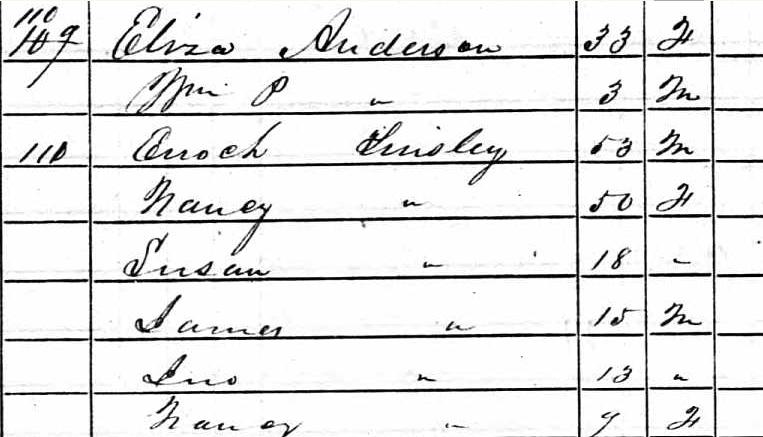 110
109 Eliza Anderson 33 F
Wm P " 3 M
110 Enoch Tinsley 53 M
Nancy " 50 F
Susan " 18 "
James " 15 M
Jno " 13 "
Nancy " 9 F